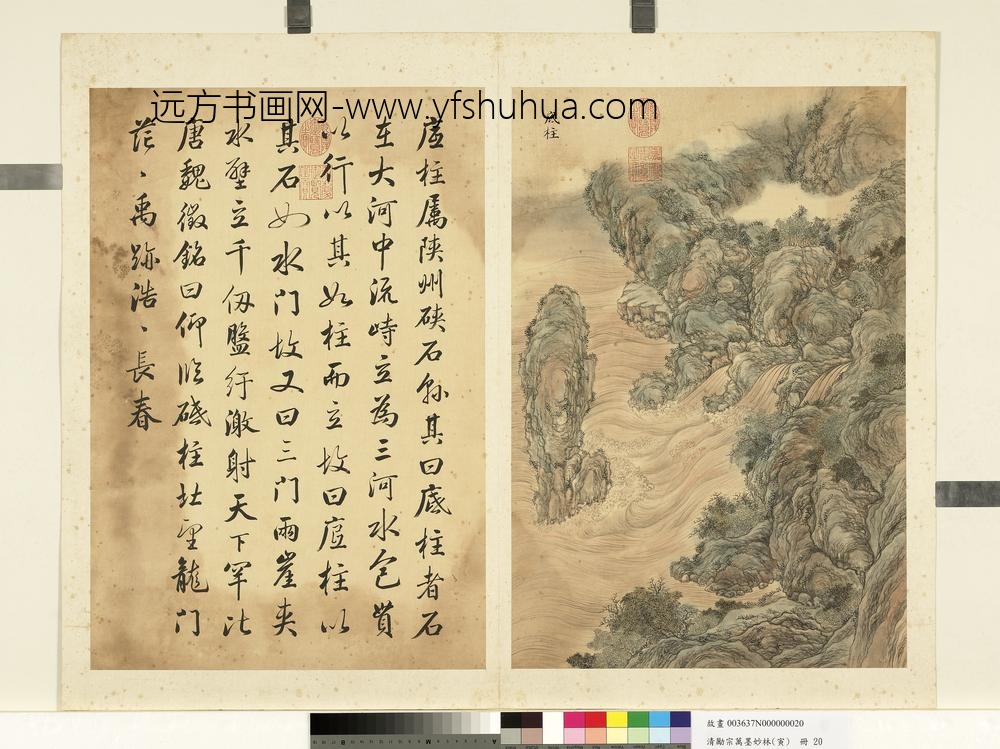 远方书画网-www.yfshuhua.com
底柱
底柱屬陝州硤石縣其曰底柱者石
在大河中流峙立為三河水包貫
以行以其如柱而立故曰底柱以
其石如水門故又曰三門兩崖夾
水壁立千仞盤紆激射天下罕比
唐魏徵銘曰仰臨砥柱北望龍門
茫、禹跡浩、長春
故畫 003637N000000020
清勵宗萬墨妙林(寅) 冊 20